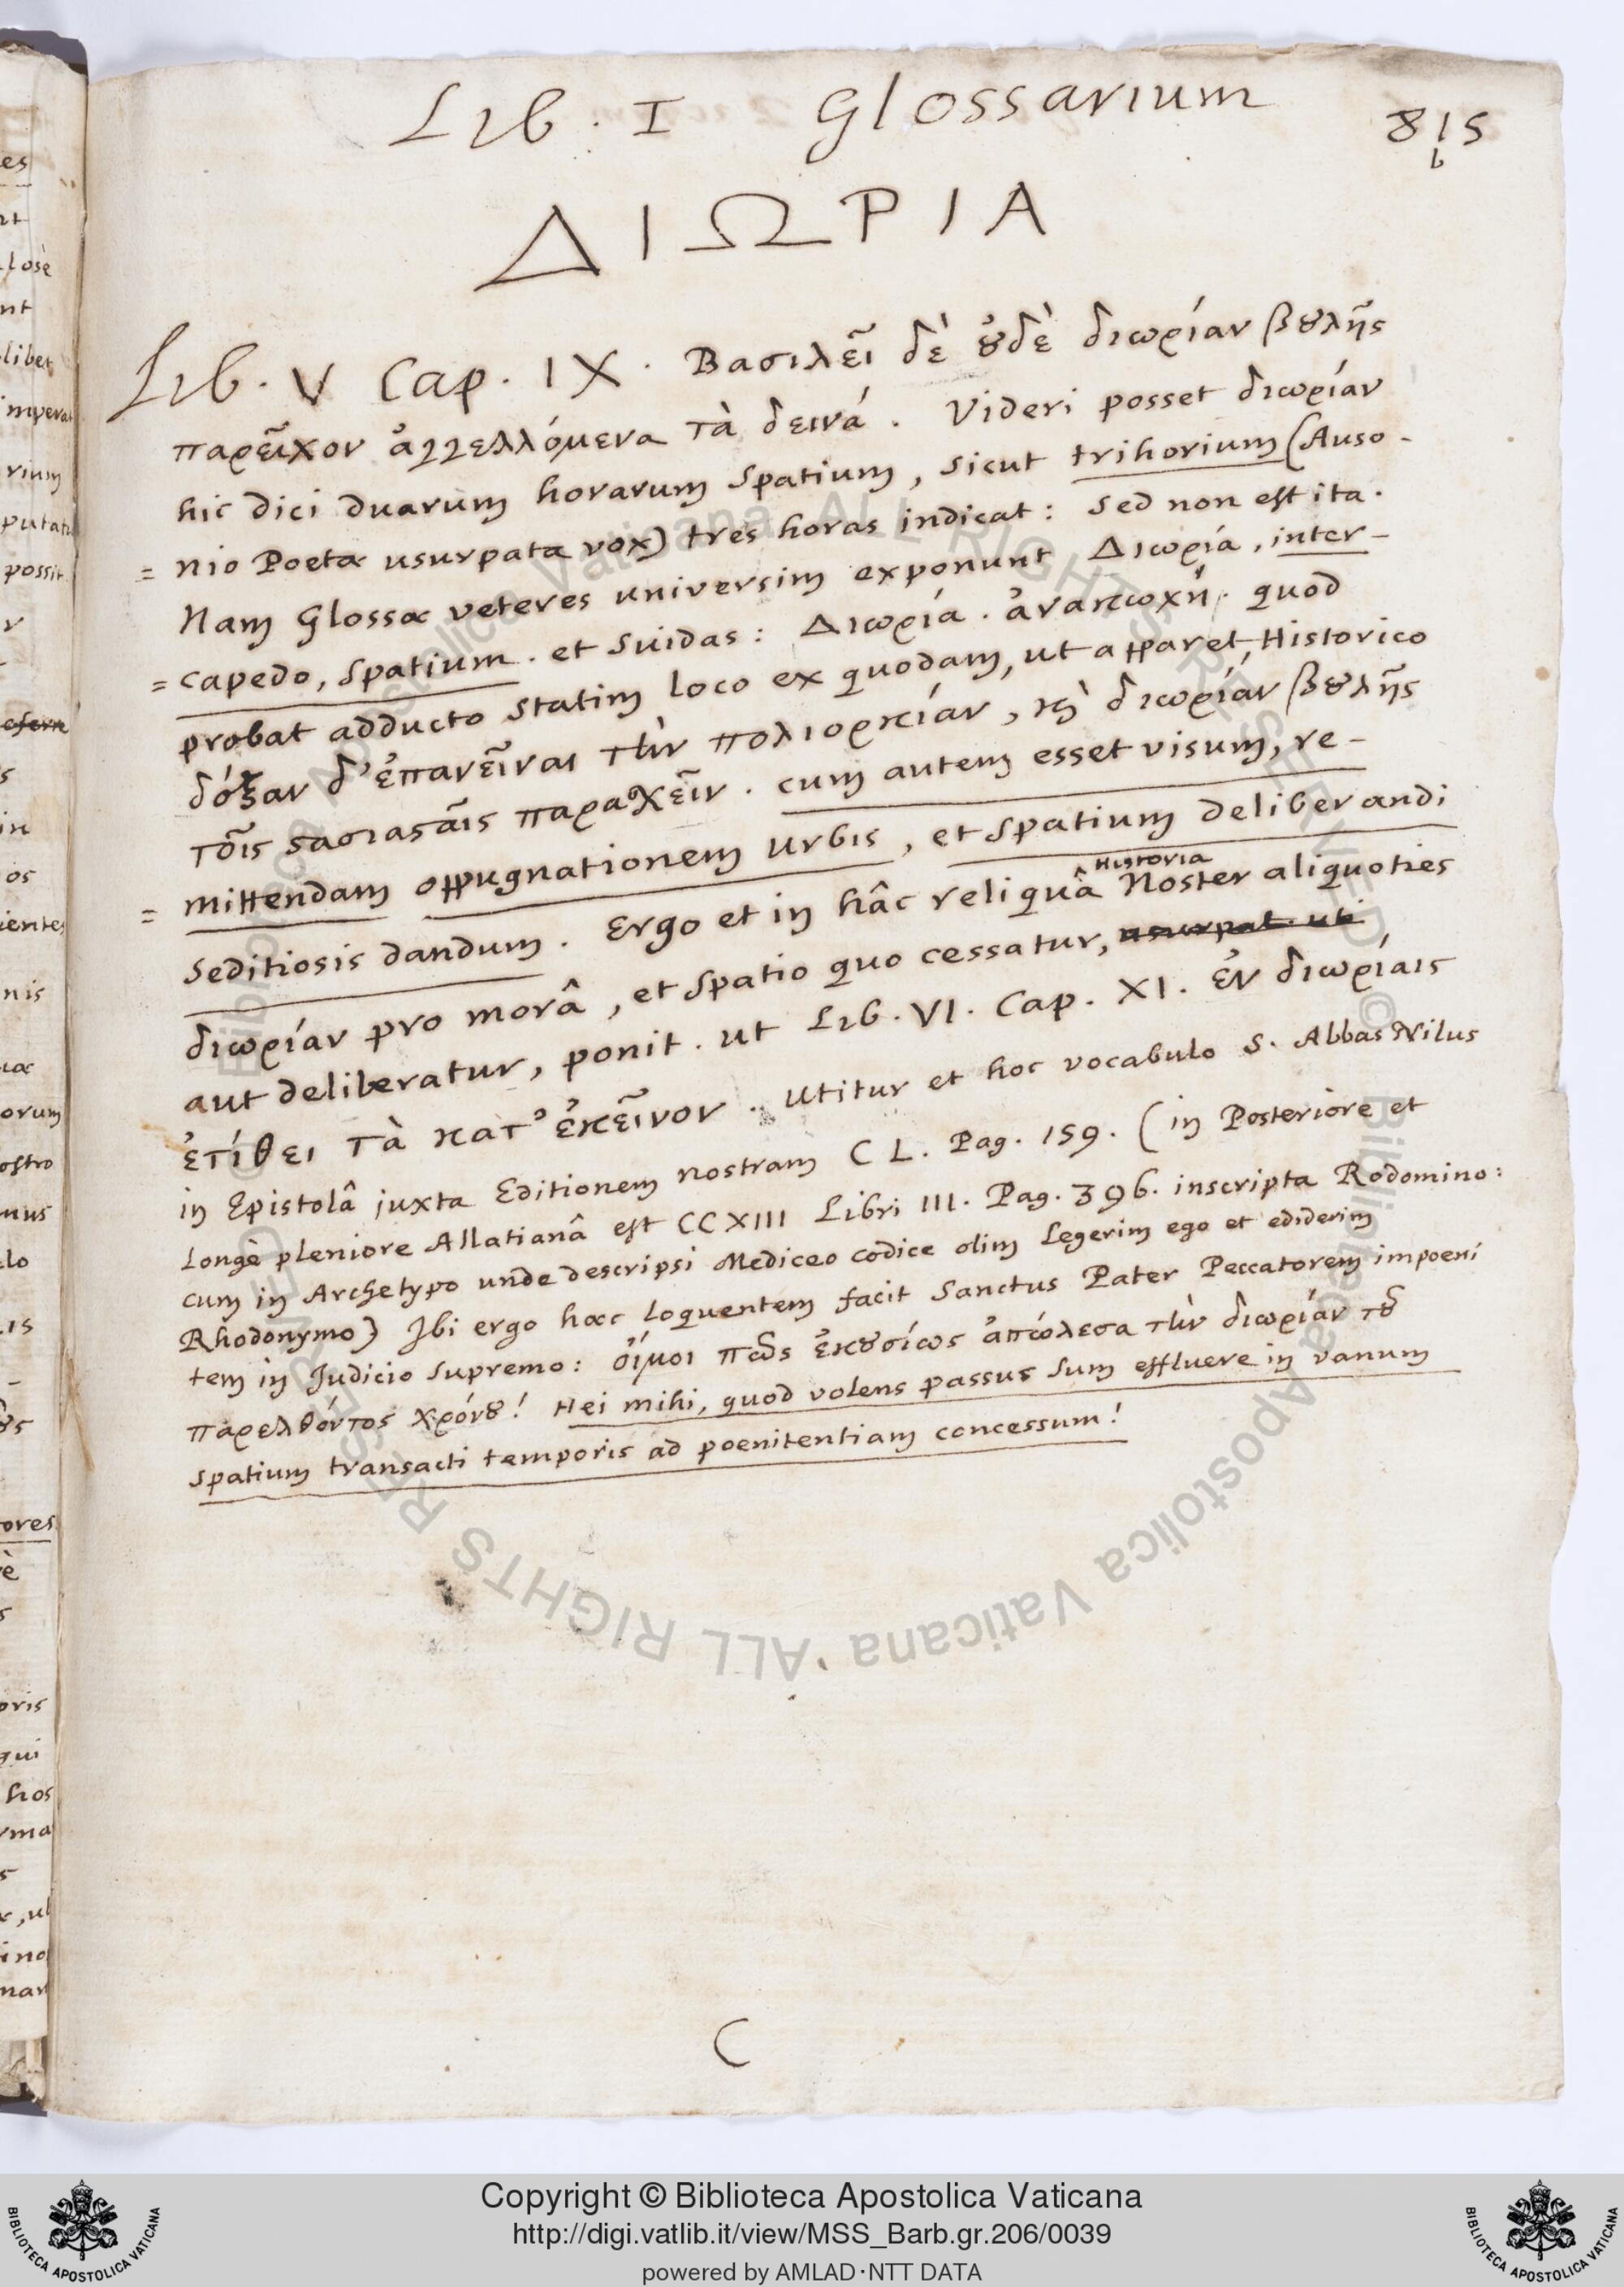 Lib. I Glossarium
815
b
ΔΙΩΡΙΑ
Lib. V Cap. IX. Βασιλεῖ δὲ ȣ̓δὲ διωρίαν βȣλῆς
παρεῖχον ἀγγελλόμενα τὰ δεινά. Videri posset διωρίαν
hic dici duarum horarum spatium, sicut trihorium (Auso-
= nio Poetæ usurpata vox) tres horas indicat: sed non est ita.
Nam Glossæ veteres universim exponunt Διωρία, inter-
= capedo, spatium. et Suidas: Διωρία. ἀνακωχή. quod
probat adducto statim loco ex quodam, ut apparet, Historico
δόξαν δ' ἐπανεῖναι τὴν πολιορκίαν, ϗ̀ διωρίαν βȣλῆς
τοῖς ϛασιαϛαῖς παραχεῖν. cum autem esset visum, re-
= mittendam oppugnationem Urbis, et spatium deliberandi
seditiosis dandum. Ergo et in hâc reliquâ Historia Noster aliquoties
διωρίαν pro morâ, et spatio quo cessatur, usurpat. uti
aut deliberatur, ponit. ut Lib. VI. Cap. XI. ἐν διωρίαις
ἐτίθει τὰ κατ' ἐκεῖνον. Utitur et hoc vocabulo S. Abbas Nilus
in Epistolâ juxta Editionem nostram CL. Pag. 159. (in Posteriore et
Longè pleniore Allatianâ est CCXIII Libri III. Pag. 396. inscripta Rodomino:
cum in Archetypo unde descripsi Mediceo codice olim Legerim ego et ediderim
Rhodonymo) Ibi ergo hæc loquentem facit Sanctus Pater Peccatorem impoeni
tem in Judicio supremo: οἴμοι πῶς ἑκȣσίως ἀπώλεσα τὴν διωρίαν τȣ͂
παρελθόντος χρόνȣ! Hei mihi, quod volens passus sum effluere in vanum
spatium transacti temporis ad poenitentiam concessum!
C
Copyright © Biblioteca Apostolica Vaticana
http://digi.vatlib.it/view/MSS_Barb.gr.206/0039
powered by AMLAD·NTT DATA